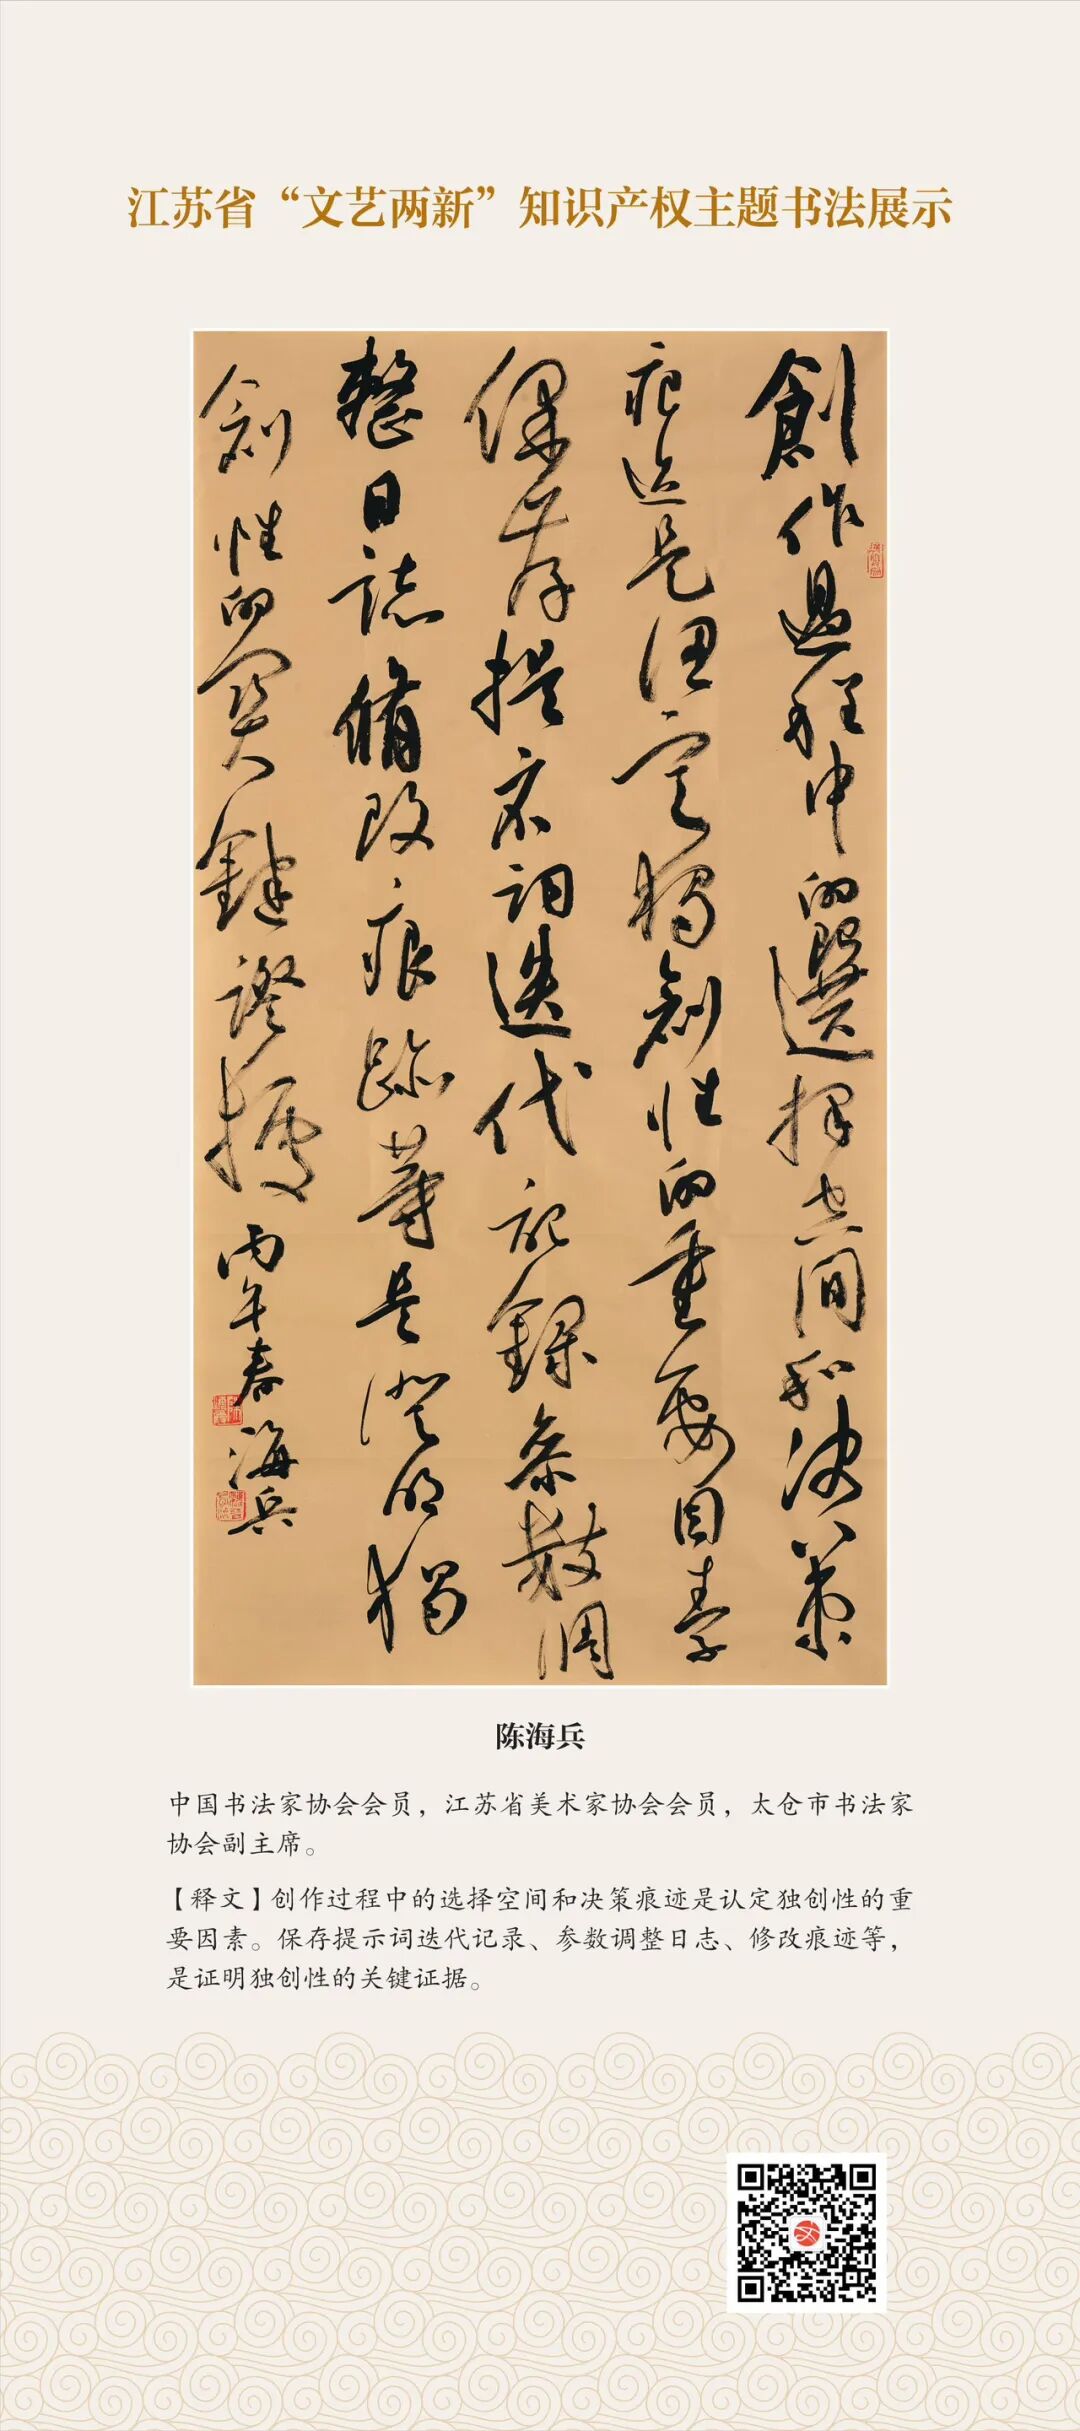 江苏省“文艺两新”知识产权主题书法展示
創作過程中的選擇空间和决策
痕迹是认定獨創性的重要因素
保存提示词迭代記錄参數调
整日誌修改痕跡等是证明獨
創性的关鍵證據丙午春海兵
陈海兵
中国书法家协会会员，江苏省美术家协会会员，太仓市书法家
协会副主席。
【释文】创作过程中的选择空间和决策痕迹是认定独创性的重
要因素。保存提示词迭代记录、参数调整日志、修改痕迹等，
是证明独创性的关键证据。